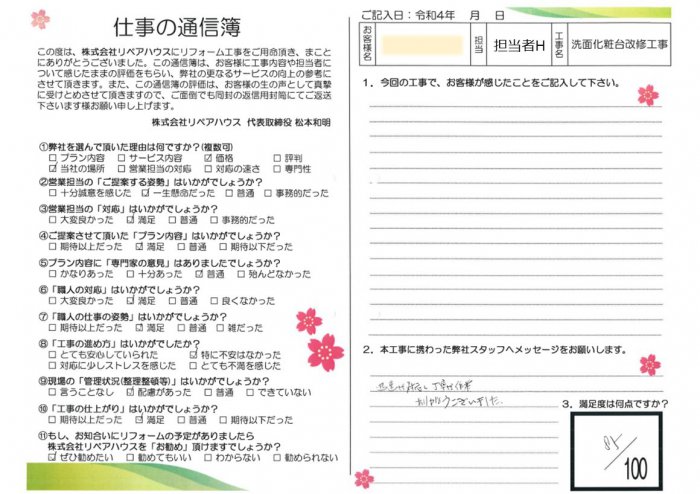 仕事の通信簿
この度は、株式会社リペアハウスにリフォーム工事をご用命頂き、まこと
にありがとうございました。この通信簿は、お客様に工事内容や担当者に
ついて感じたままの評価をもらい、弊社の更なるサービスの向上の参考に
させて頂きます。また、この通信簿の評価は、お客様の生の声として真摯
に受けとめさせて頂きますので、ご面倒でも同封の返信用封筒にてご返送
下さいます様お願い申し上げます。
株式会社リペアハウス 代表取締役 松本和明
①弊社を選んで頂いた理由は何ですか?(複数可)
□プラン内容 □サービス内容 ☑価格 □評判
☑当社の場所 □営業担当の対応 □対応の速さ □専門性
②営業担当の「ご提案する姿勢」はいかがでしょうか?
□十分誠意を感じた ☑一生懸命だった □普通 □事務的だった
③営業担当の「対応」はいかがでしょうか?
□大変良かった ☑満足 □普通 □事務的だった
④ご提案させて頂いた「プラン内容」はいかがでしょうか?
□期待以上だった ☑満足 □普通 □期待以下だった
⑤プラン内容に「専門家の意見」はありましたでしょうか?
□かなりあった □十分あった ☑普通 □殆んどなかった
⑥「職人の対応」はいかがでしょうか?
□大変良かった ☑満足 □普通 □良くなかった
⑦「職人の仕事の姿勢」はいかがでしょうか?
□期待以上だった ☑満足 □普通 □雑だった
⑧「工事の進め方」はいかがでしたか?
□とても安心していられた ☑特に不安はなかった
□対応に少しストレスを感じた □とても不満を感じた
⑨現場の「管理状況(整理整頓等)」はいかがでしょうか?
□言うことなし ☑配慮があった □普通 □できていない
⑩「工事の仕上がり」はいかがでしょうか?
□期待以上だった ☑満足 □普通 □期待以下だった
⑪もし、お知合いにリフォームの予定がありましたら
株式会社リペアハウスを「お勧め」頂けますでしょうか?
☑ぜひ勧めたい □勧めてもいい □わからない □勧められない
ご記入日:令和4年 月 日
お客様名
担当
担当者H
工事名
洗面化粧台改修工事
1.今回の工事で、お客様が感じたことをご記入して下さい。
2.本工事に携わった弊社スタッフへメッセージをお願いします。
ありがとうございました。
3.満足度は何点ですか?
85/100